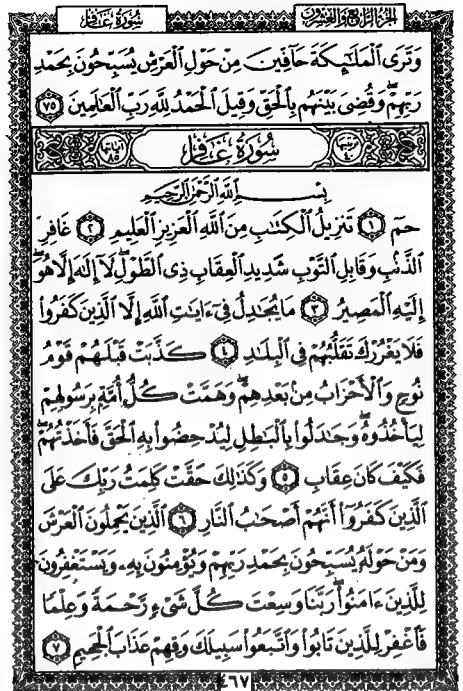 الجزء الرابع والعشرون
سورة غافر
وَتَرَى الْمَلَٰٓئِكَةَ حَآفِّينَ مِنْ حَوْلِ الْعَرْشِ يُسَبِّحُونَ بِحَمْدِ
رَبِّهِمْ ۖ وَقُضِىَ بَيْنَهُم بِالْحَقِّ وَقِيلَ الْحَمْدُ لِلَّهِ رَبِّ الْعَٰلَمِينَ ٧٥
ترتيبها ٤٠ سورة غافر آياتها ٨٥
بِسْمِ اللَّهِ الرَّحْمَٰنِ الرَّحِيمِ
حمٓ ١ تَنزِيلُ الْكِتَٰبِ مِنَ اللَّهِ الْعَزِيزِ الْعَلِيمِ ٢ غَافِرِ
الذَّنۢبِ وَقَابِلِ التَّوْبِ شَدِيدِ الْعِقَابِ ذِى الطَّوْلِ ۖ لَآ إِلَٰهَ إِلَّا هُوَ ۖ
إِلَيْهِ الْمَصِيرُ ٣ مَا يُجَٰدِلُ فِىٓ ءَايَٰتِ اللَّهِ إِلَّا الَّذِينَ كَفَرُوا
فَلَا يَغْرُرْكَ تَقَلُّبُهُمْ فِى الْبِلَٰدِ ٤ كَذَّبَتْ قَبْلَهُمْ قَوْمُ
نُوحٍ وَالْأَحْزَابُ مِنۢ بَعْدِهِمْ ۖ وَهَمَّتْ كُلُّ أُمَّةٍۭ بِرَسُولِهِمْ
لِيَأْخُذُوهُ ۖ وَجَٰدَلُوا بِالْبَٰطِلِ لِيُدْحِضُوا بِهِ الْحَقَّ فَأَخَذْتُهُمْ ۖ
فَكَيْفَ كَانَ عِقَابِ ٥ وَكَذَٰلِكَ حَقَّتْ كَلِمَتُ رَبِّكَ عَلَى
الَّذِينَ كَفَرُوٓا أَنَّهُمْ أَصْحَٰبُ النَّارِ ٦ الَّذِينَ يَحْمِلُونَ الْعَرْشَ
وَمَنْ حَوْلَهُۥ يُسَبِّحُونَ بِحَمْدِ رَبِّهِمْ وَيُؤْمِنُونَ بِهِۦ وَيَسْتَغْفِرُونَ
لِلَّذِينَ ءَامَنُوا رَبَّنَا وَسِعْتَ كُلَّ شَىْءٍ رَّحْمَةً وَعِلْمًا
فَاغْفِرْ لِلَّذِينَ تَابُوا وَاتَّبَعُوا سَبِيلَكَ وَقِهِمْ عَذَابَ الْجَحِيمِ ٧
٤٦٧